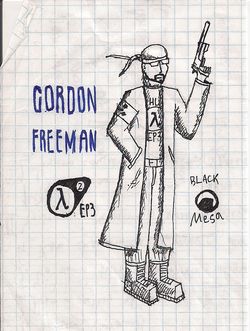 GORDON
FREEMAN
HL
λ
EP3
λ 2
EP3
BLACK
Mesa